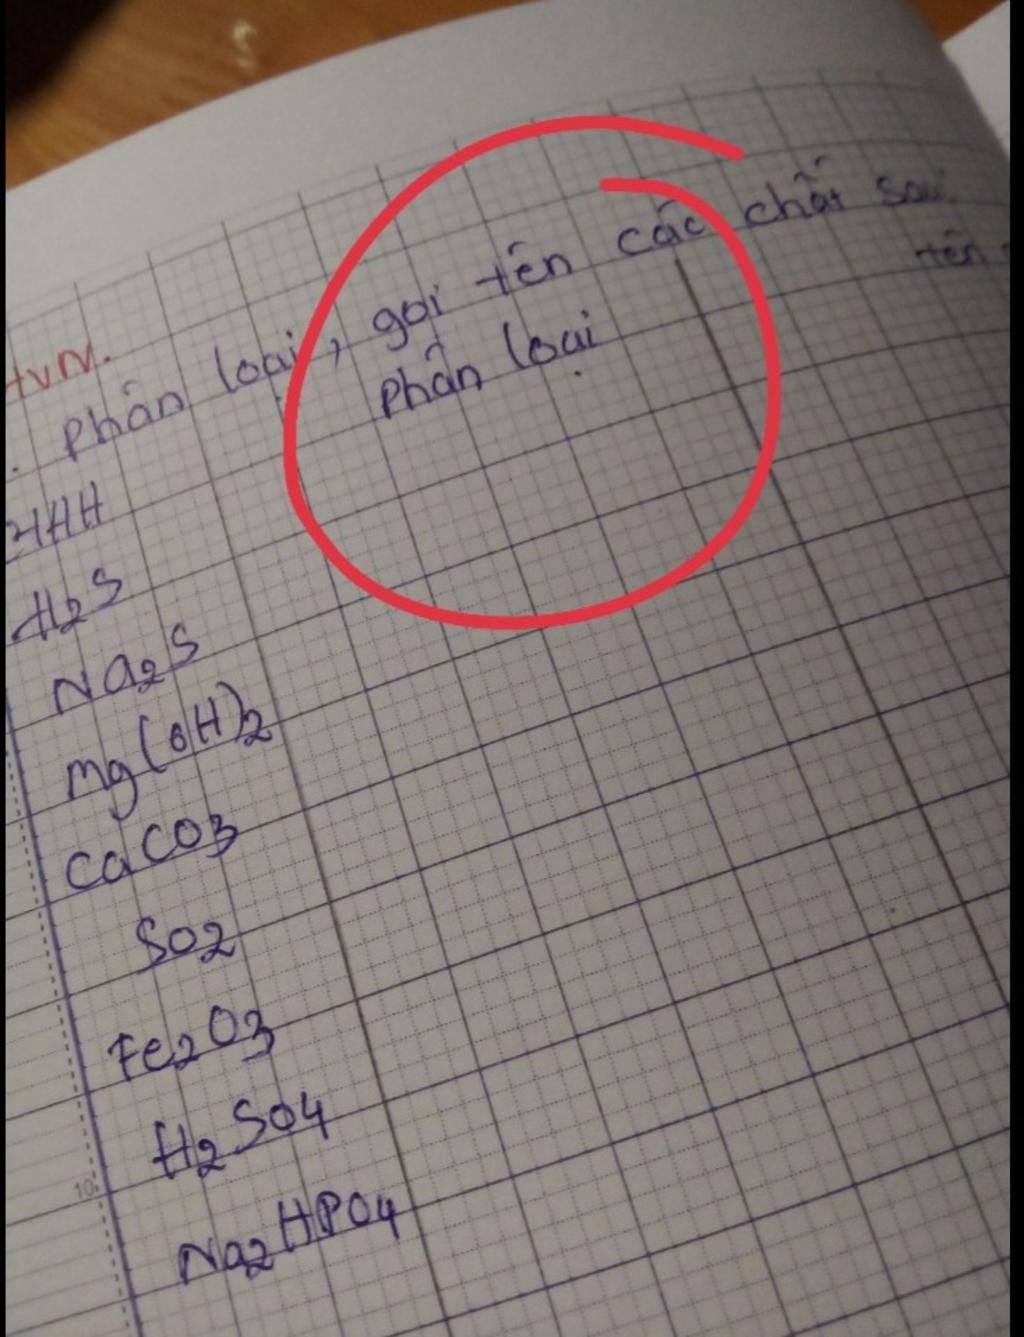 . Phân loại, gọi tên các chất sau
Phân loại
tên
H2S
Na2S
Mg(OH)2
CaCO3
SO2
Fe2O3
H2SO4
Na2HPO4
10